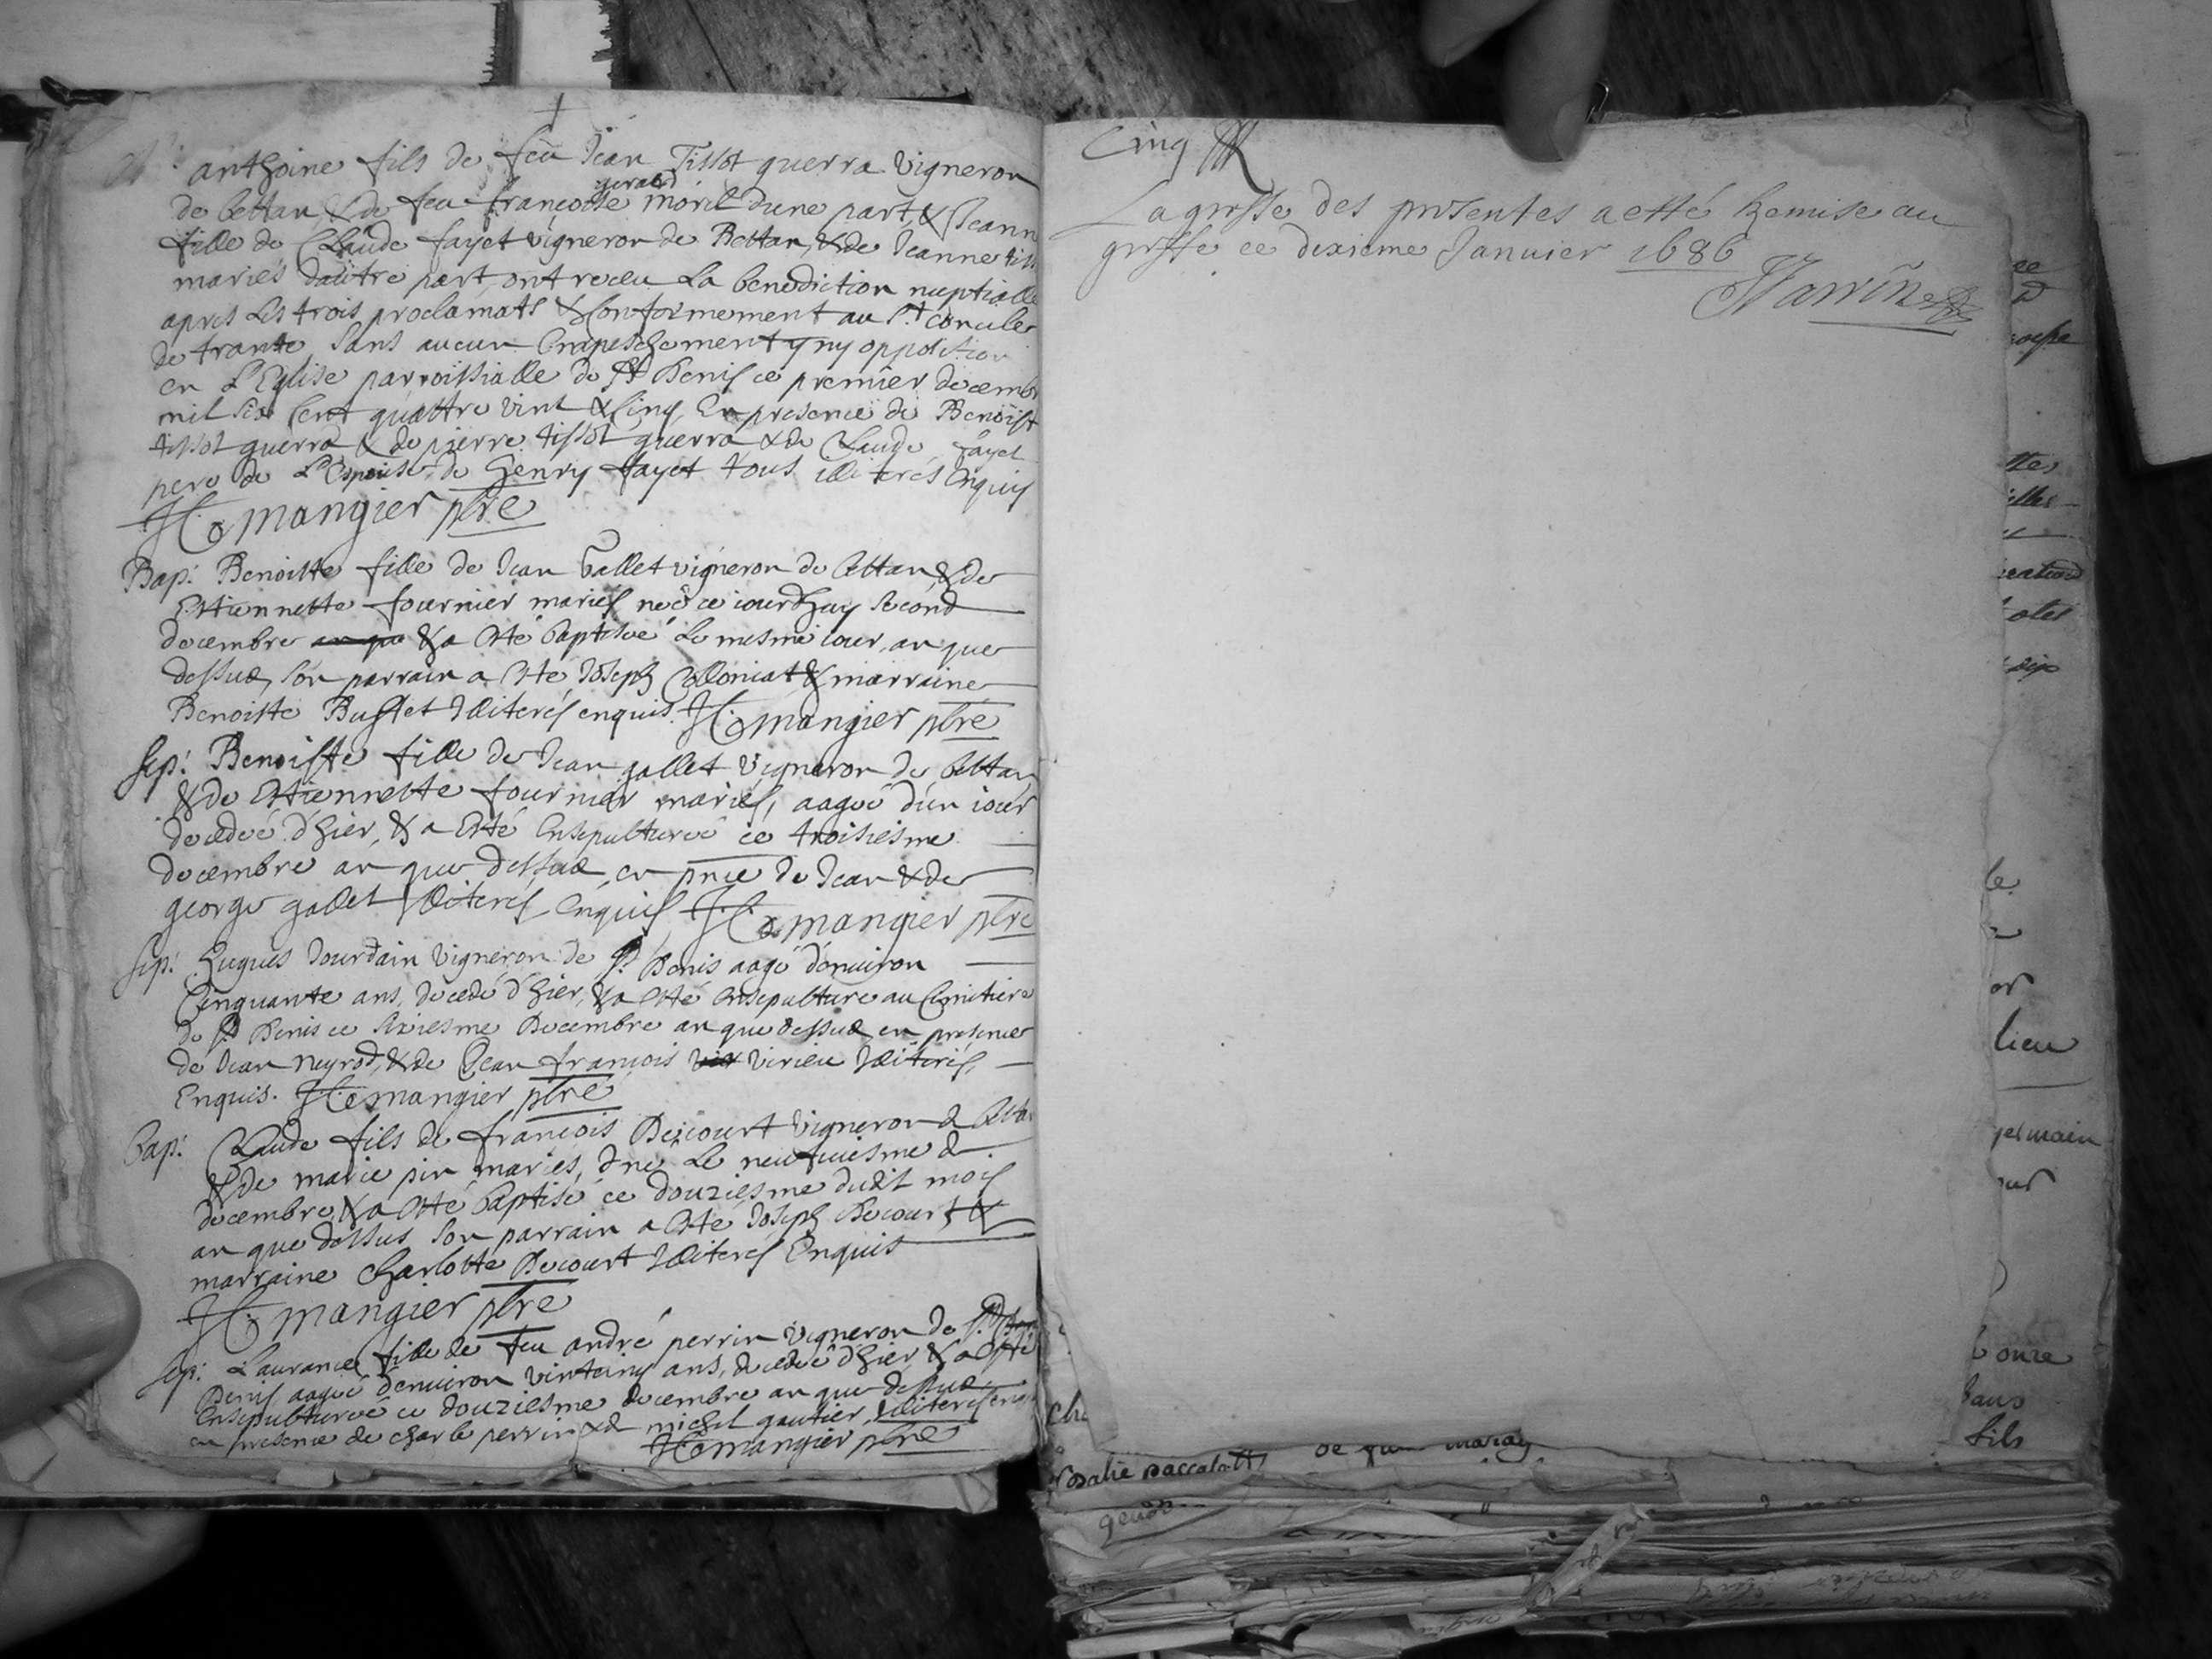 anthoine fils de feu Jean Tissot guerra vigneron
de bettan & de feu francoise gerard morel dune part & Jeanne
fille de Claude fayet vigneron de Bettan, & de Jeanne tiss
mariés dautre part, ont receu La benediction nuptialle
apres Les trois proclamats & Conformement au st. concile
de trante sans aucun Empeschement y ny opposition
en L'Eglise parroissialle de St Denis ce premier decemb
mil six Cent quattre vint & Cinq, En presence de Benoist
tissot guerra & de pierre tissot guerra & de Claude fayet
pere de L'Espouse, de henry fayet tous illiterés Enquis
mangier pbre
Bap: Benoitte fille de Jean gallet vigneron de bettan, & de
Ettiennette fournier mariés, neé ce iourdhuy second
decembre & a esté baptiseé Le mesme iour, an que
dessus, son parrain a esté Joseph Colloniat & marraine
Benoitte Buffet Illiterés enquis. mangier pbre
Sep: Benoitte fille de Jean gallet vigneron de bettan
& de Ettiennette fournier mariés, aageé d'un iour
decedeé d'hier, & a esté Ensepultureé ce troisiesme
decembre an que dessus en pnce de Jean & de
george gallet Illiterés Enquis mangier pbre
Sep: hugues Jourdain vigneron de St Denis aagé d'enuiron
Cinquante ans, decedé d'hier, & a esté ensepulture au Cimitiere
de St Denis ce sixiesme Decembre an que dessus, en presence
de Jean neyrod, & de Jean francois virieu Illiterés,
Enquis. mangier pbre
Bap: Claude fils de francois Decourt vigneron de bettan
& de marie pin mariés, & né Le neufuiesme de
decembre, & a esté baptisé ce douziesme dudit mois
an que dessus son parrain a esté Joseph Decourt &
marraine Charlotte Decourt Illiterés Enquis
mangier pbre
Sep: Laurance fille de feu andré perrin vigneron de St
Denis aageé d'enuiron vintcinq ans, decedeé d'hier & a esté
Ensepultureé ce douziesme decembre an que dessus
en presence de charle perrin & de michel gautier, Illiterés enq
mangier pbre
Cinq
La grosse des presentes a etté Remise au
greffe ce dixieme Januier 1686
lieu
germain
onze
fils